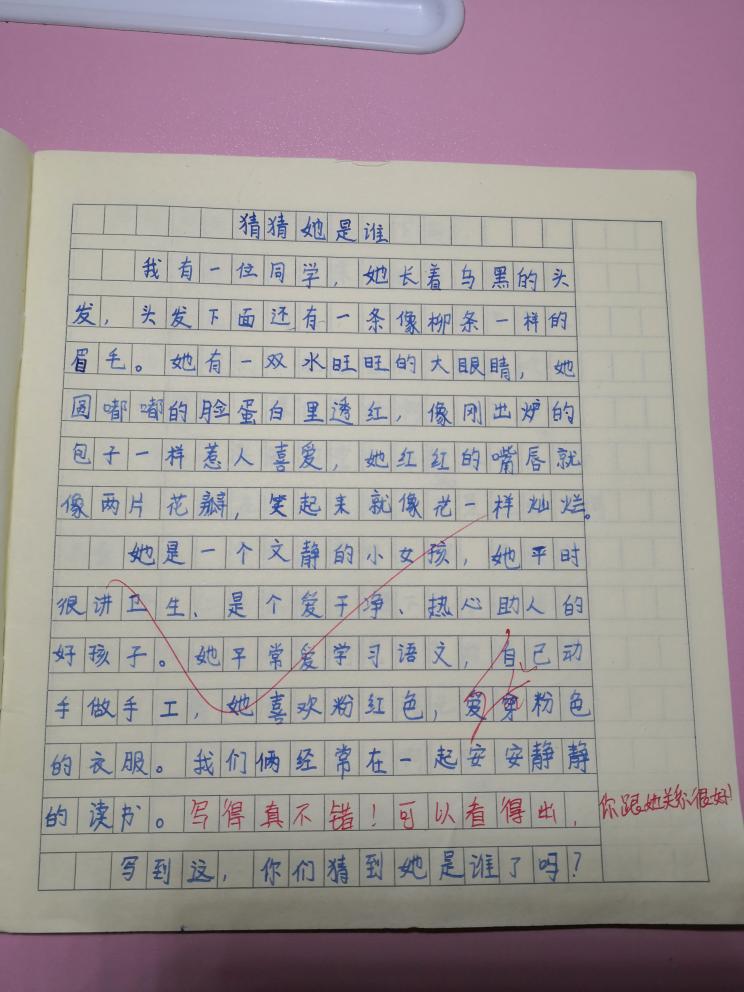 猜猜她是谁
我有一位同学，她长着乌黑的头
发，头发下面还有一条像柳条一样的
眉毛。她有一双水旺旺的大眼睛，她
圆嘟嘟的脸蛋白里透红，像刚出炉的
包子一样惹人喜爱，她红红的嘴唇就
像两片花瓣，笑起来就像花一样灿烂。
她是一个文静的小女孩，她平时
很讲卫生、是个爱干净、热心助人的
好孩子。她平常爱学习语文，自己动
手做手工，她喜欢粉红色，爱穿粉色
的衣服。我们俩经常在一起安安静静
的读书。写得真不错！可以看得出，你跟她关系很好！
写到这，你们猜到她是谁了吗？